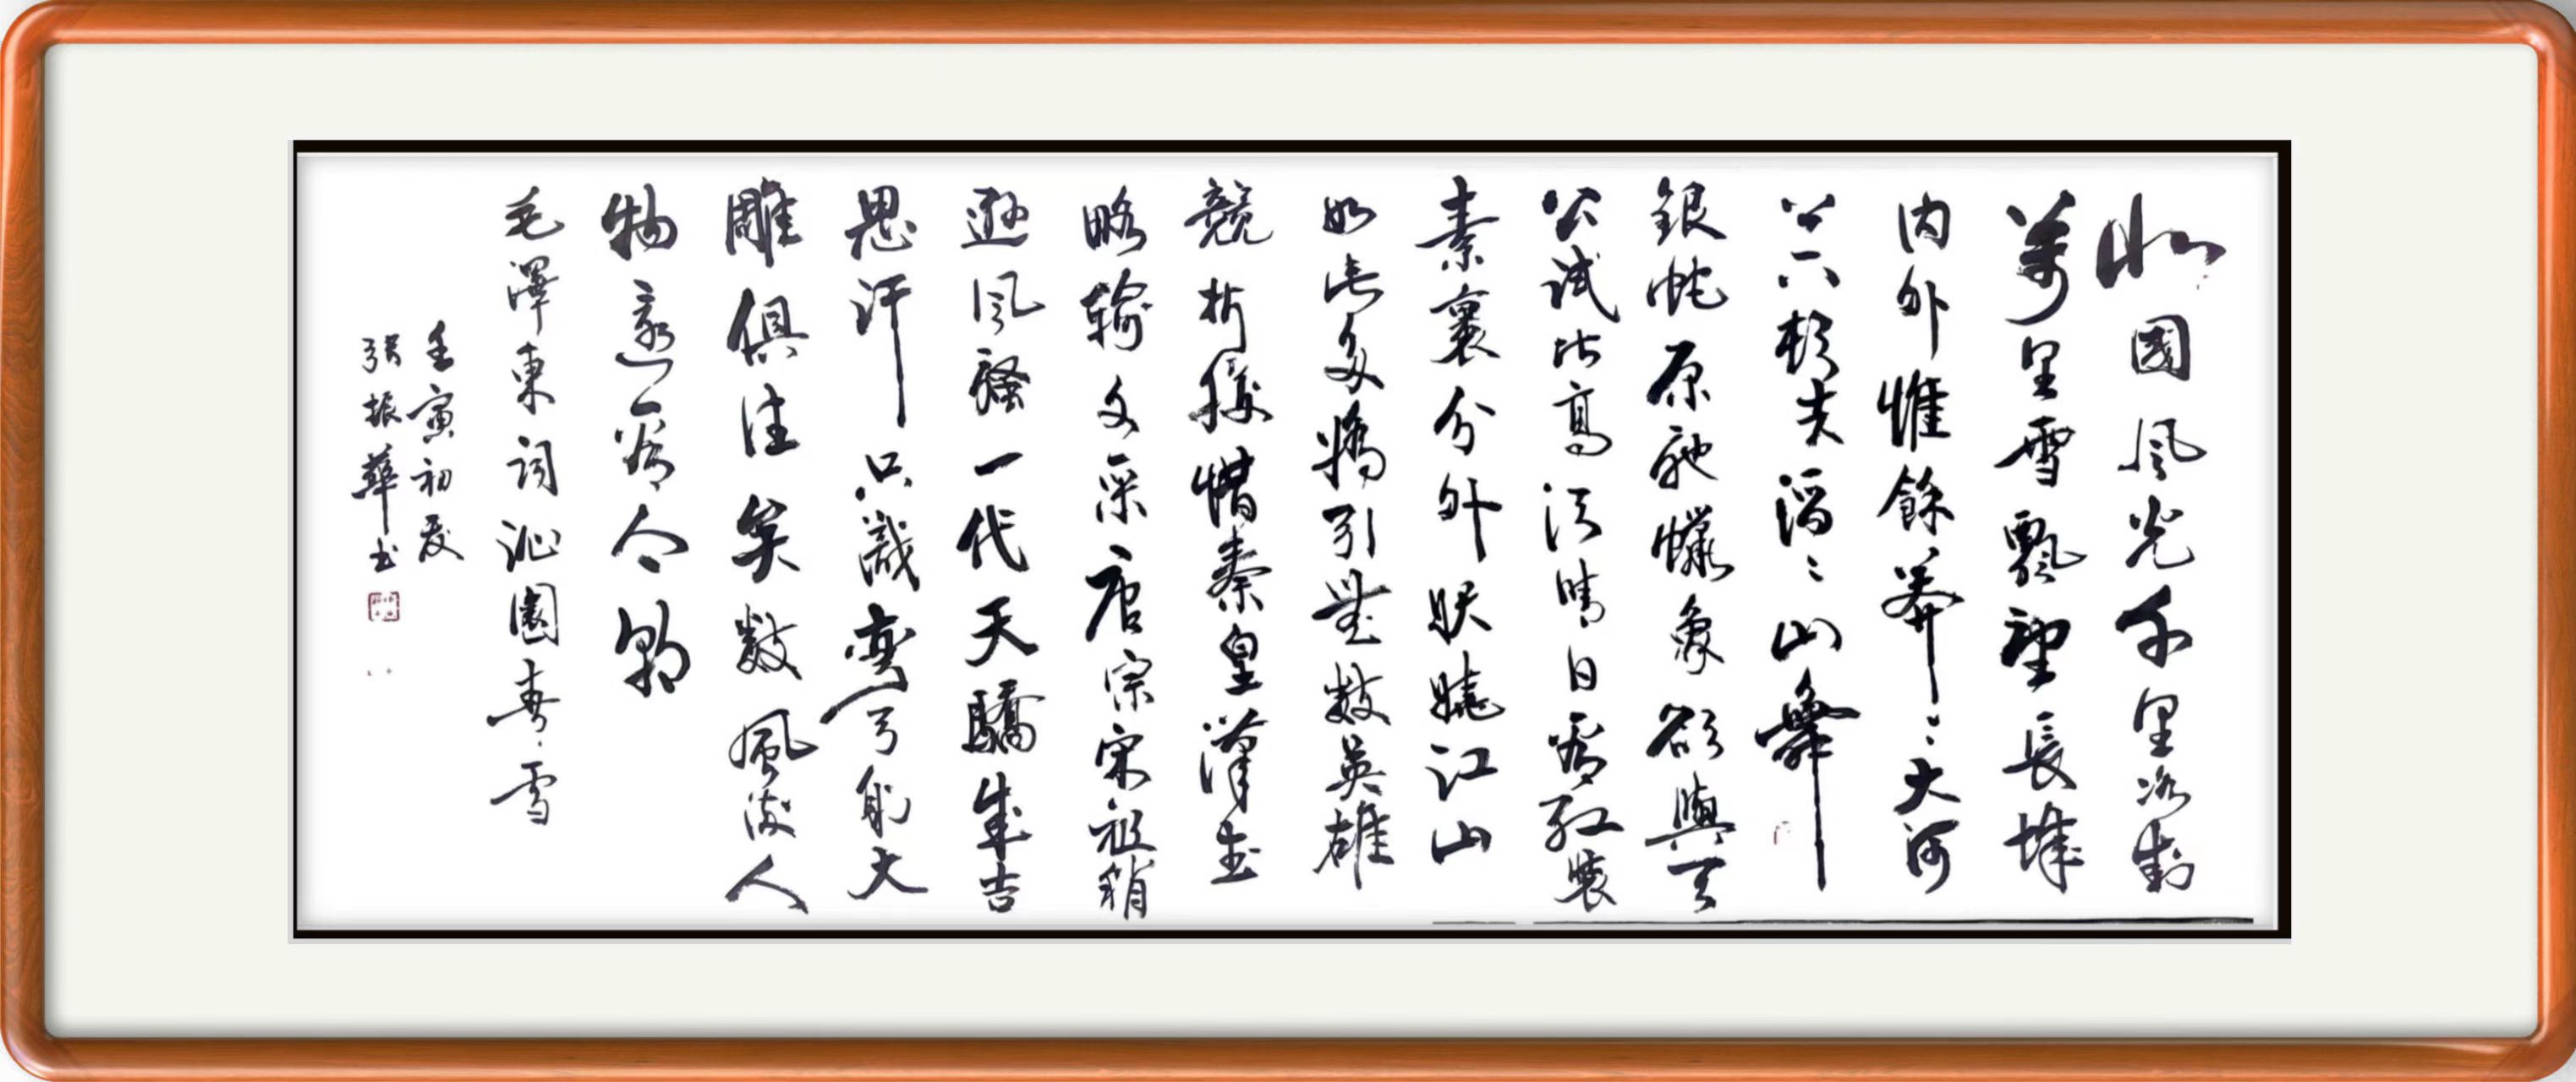 北國風光千里冰封
萬里雪飄望長城
内外惟餘莽〻大河
上下頓失滔〻山舞
銀蛇原馳蠟象欲與天
公試比高須晴日看紅裝
素裹分外妖嬈江山
如此多嬌引無數英雄
競折腰惜秦皇漢武
略輸文采唐宗宋祖稍
遜風騷一代天驕成吉
思汗只識彎弓射大
雕俱往矣數風流人
物還看今朝
毛澤東詞沁園春雪
壬寅初夏
張振華书